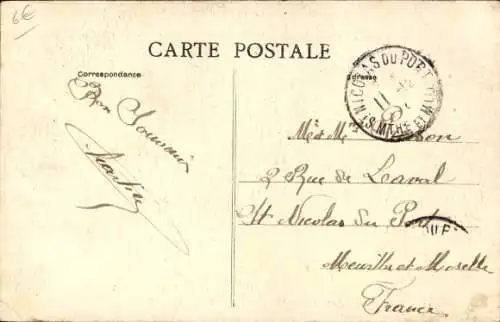 6€
CARTE POSTALE
Correspondance
Adresse
ST NICOLAS DU PORT
11
(S. MTHE ET M
Bon Souvenir
M et Mme
2 Rue de Laval
St Nicolas du Port
Meurthe et Moselle
France